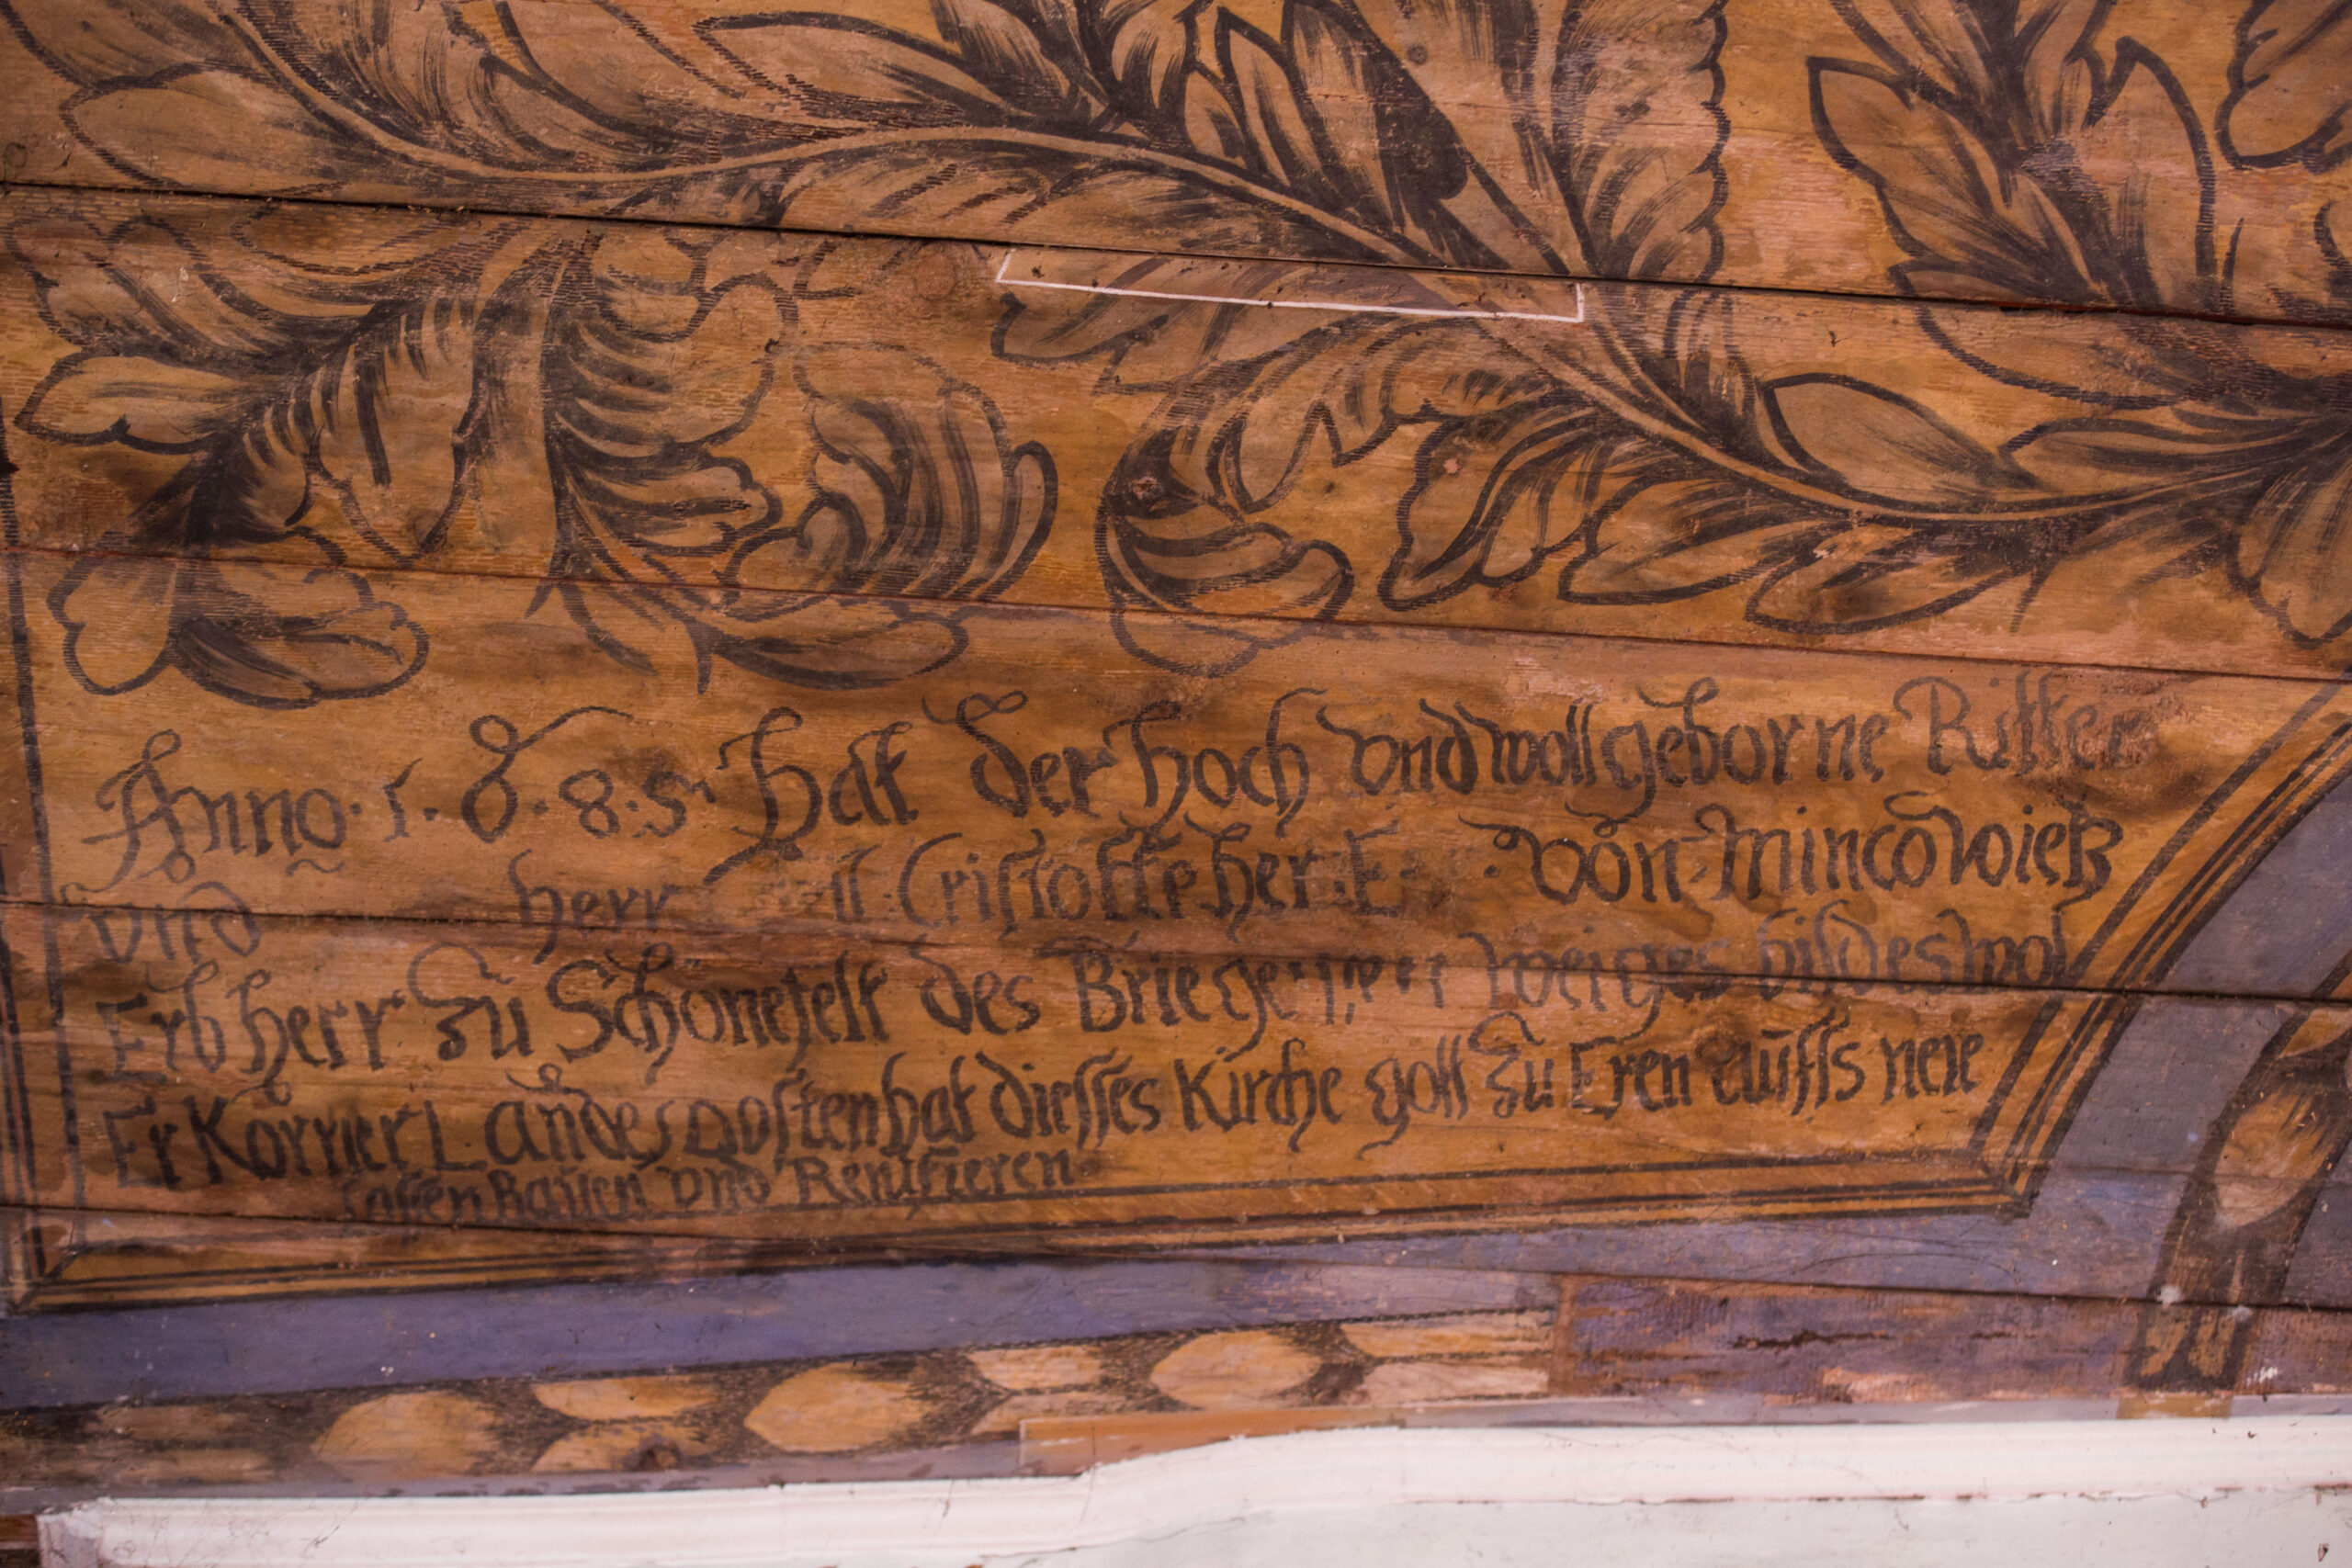 Anno · 1 · 6 · 8 · 5 hat der hoch vnd wollgeborne Ritter
vnd herr Cristoffe her von Mincowietz
Erbherr zu Schonefelt des weiges bildes wol
Er Korrner Landes hat diesses Kirche gott zu Eren auffs neie
lassen Bauen vnd Renifieren